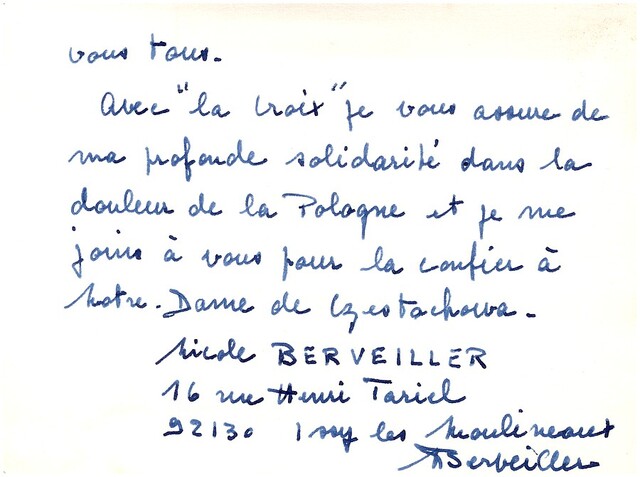 vous tous.
Avec "la Croix" je vous assure de
ma profonde solidarité dans la
douleur de la Pologne et je me
joins à vous pour la confier à
Notre-Dame de Czestochowa.
Nicole BERVEILLER
16 rue Henri Tariel
92130 Issy les Moulineaux
NBerveiller